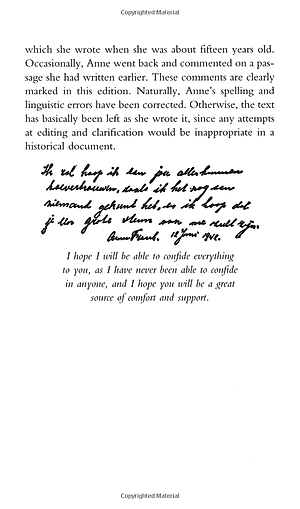 Copyrighted Material
which she wrote when she was about fifteen years old.
Occasionally, Anne went back and commented on a pas-
sage she had written earlier. These comments are clearly
marked in this edition. Naturally, Anne's spelling and
linguistic errors have been corrected. Otherwise, the text
has basically been left as she wrote it, since any attempts
at editing and clarification would be inappropriate in a
historical document.
Ik zal hoop ik aan jou alles kunnen
toevertrouwen, zoals ik het nog aan
niemand gekund heb, en ik hoop dat
je een grote steun van me zult zijn.
Anne Frank. 12 Juni 1942.
I hope I will be able to confide everything
to you, as I have never been able to confide
in anyone, and I hope you will be a great
source of comfort and support.
Copyrighted Material